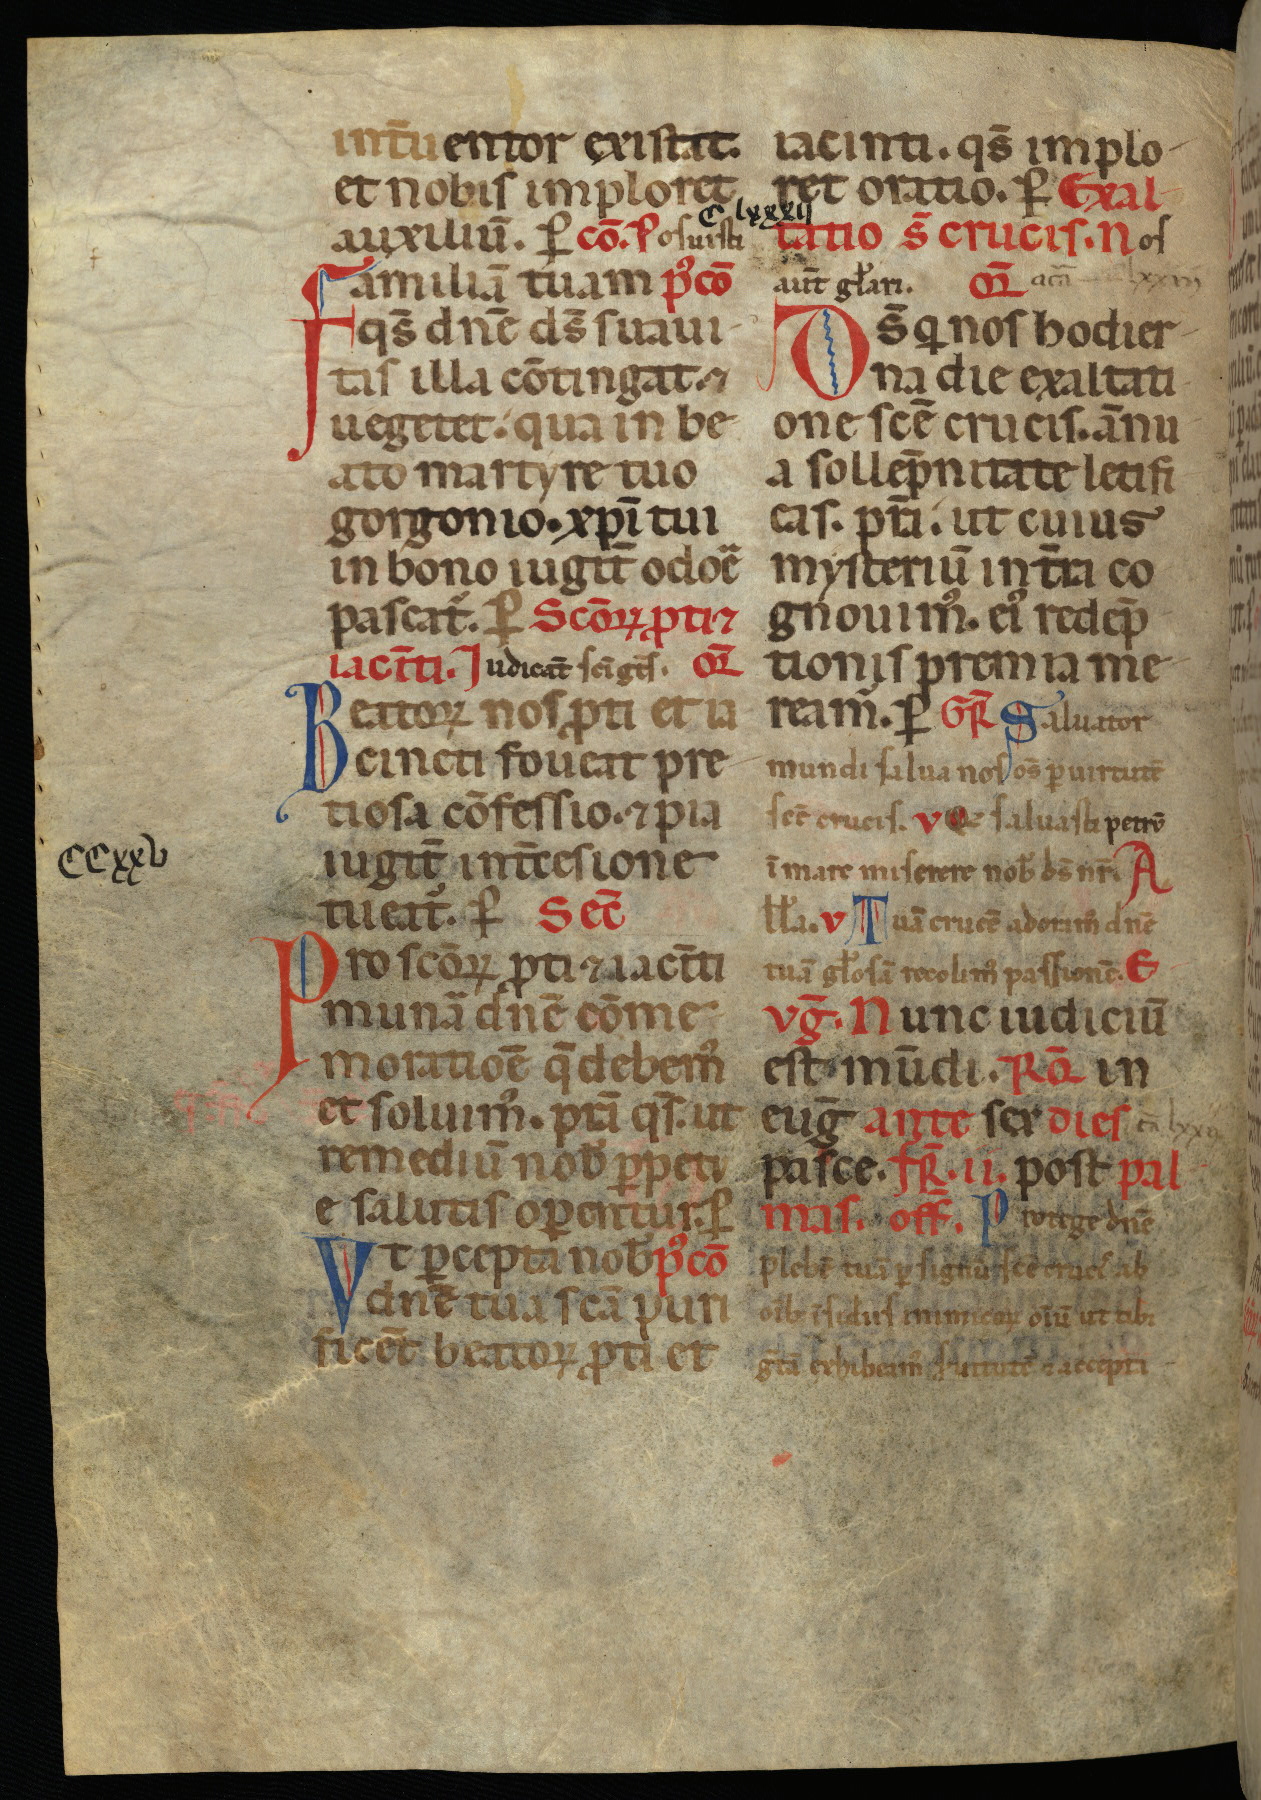 int̄uentor existat.
et nobis imploret
auxiliū. ꝑ cō. Posuisti
Familiā tuam p̾cō
qs̄ dn̄e ds̄ suaui
tas illa cōtingat. ⁊
uegetet. qua in be
ato martyre tuo
gorgonio. xp̄i tui
in bono iugit̄ odoē
pascat᷑. ꝑ Scōꝝ ꝓti ⁊
iaci̅ti. Iudicāt sc̄i gt̄s. OR̄
Beatoꝝ nos ꝓti et ia
cincti foueat pre
tiosa cōfessio. ⁊ pia
iugit̄ int̄cesione
tueat᷑. ꝑ Sec̄
CCxxv
Pro scōꝝ ꝓti ⁊ iaci̅ti
munā dn̄e cōme
moratiōe q̄ debem᷒
et soluim᷒. pr̄ta qs̄. ut
remediū nob̄ ꝑpetu
e salutis oꝑentur. ꝑ
Ut ꝑcepta nob̄ p̾cō
dn̄e tua scā puri
ficēt beatoꝝ ꝓti et
iacinti. qs̄ implo
ret oratio. ꝑ Exal
C lxxxij
tatio s̄ crucis. Nos
aūt gl̄ari. OR̄
Ds̄ qi nos hodier
na die exaltati
one scē crucis. ānu
a sollēpnitate letifi
cas. pr̄ta. ut cuius
mysteriū in t̄ra co
gnouim᷒. ei᷒ redēp
tionis premia me
ream᷒. ꝑ GR̄ Saluator
mundi salua nos os̄ ꝑ uirtutē
scē crucis. V Qi saluasti petrū
ī mare miserere nob̄ ds̄ nr̄. A
ll̄a. V Tuā crucē adoram᷒ dn̄e
tuā gl̄osā recolim᷒ passionē. E
vḡ. Nunc iudiciū
est mūdi. Rq̄ in
euḡ ante sex dies
pasce. fr̄. ii. post pal
mas. off̄. Protege dn̄e
plebē tuā ꝑ signū scē cruc̄ ab
oīb᷒ īsidiis inimicoꝝ oīū ut tibi
gr̄tā exhibeam᷒ ẜuitutē ⁊ accepti